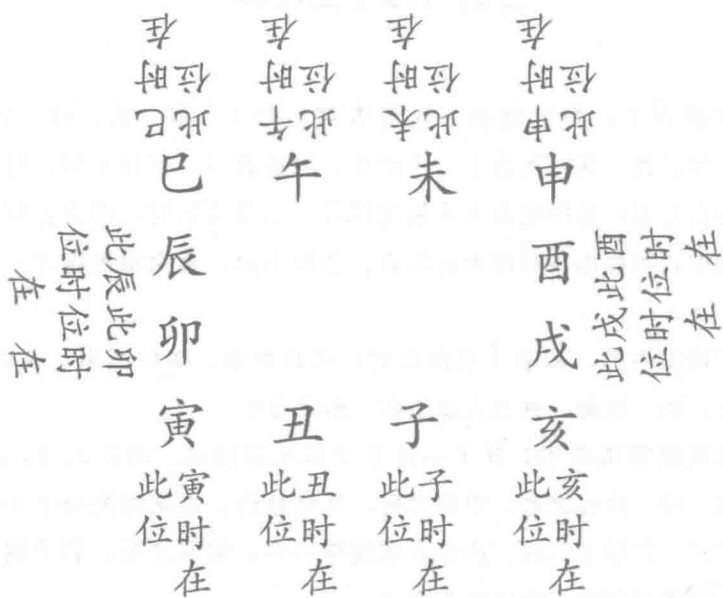 巳时在
此位
午时在
此位
未时在
此位
申时在
此位
巳 午 未 申
辰时在
此位
卯时在
此位
辰 酉
卯 戌
酉时在
此位
戌时在
此位
寅 丑 子 亥
寅时在
此位
丑时在
此位
子时在
此位
亥时在
此位